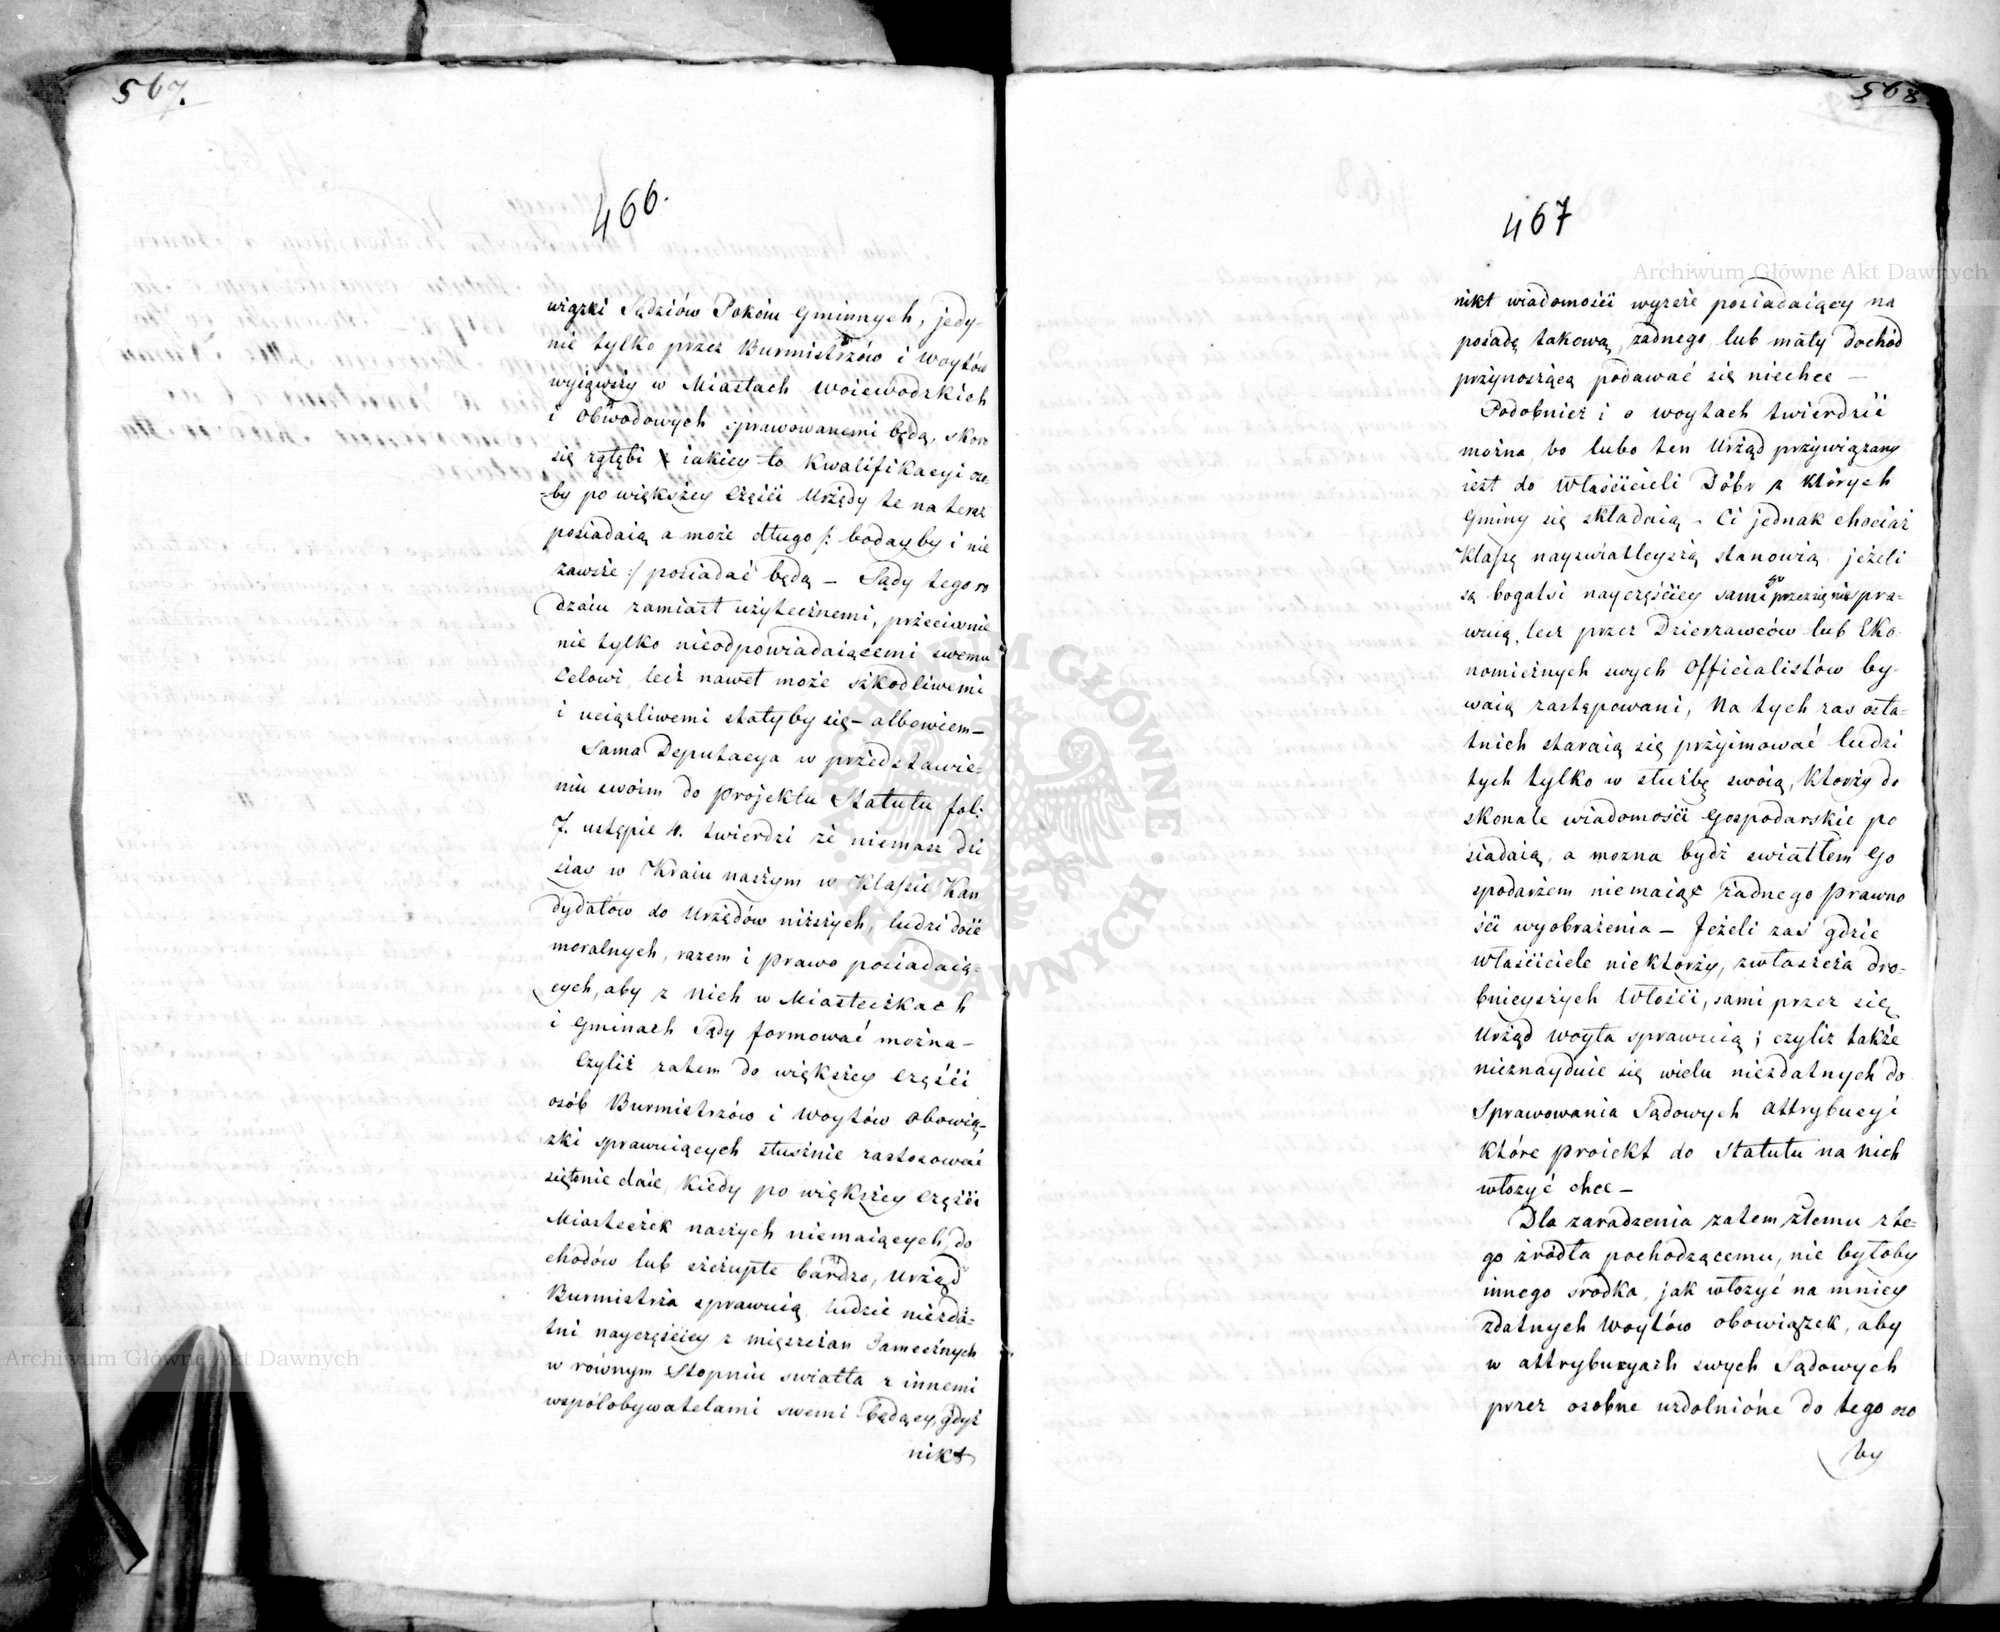 567.
466.
wiązki Sędziów Pokoiu Gminnych, jedy-
nie tylko przez Burmistrzów i Woytów
wyiąwszy w Miastach Woiewodzkich
i Obwodowych sprawowanemi będą, skoro
się zgłębi iakiey to Kwalifikacyi oso-
-by po większey Części Urzędy te na teraz
posiadaią a może długo /: bodayby i nie
zawsze :/ posiadać będą – Sądy tego ro
dzaiu zamiast użytecznemi, przeciwnie
nie tylko nieodpowiadaiącemi swemu
Celowi, lecz nawet może szkodliwemi
i uciążliwemi stałyby się – albowiem –
Sama Deputacya w przedstawie-
niu swoim do projektu Statutu fol:
7. ustępie 4. twierdzi że niemasz dzi
siay w Kraiu naszym w Klassie Kan
dydatów do Urzędów niższych, ludzi dość
moralnych, razem i prawo posiadaią-
cych, aby z nich w Miasteczkach
i Gminach Sądy formować można –
Czyliż zatem do większey Części
osób Burmistrzów i Woytów obowią-
zki sprawuiących słusznie zastosować
się to nie daie, Kiedy po większey Części
Miasteczek naszych niemaiących do
chodów lub szczupłe bardzo, Urząd
Burmistrza sprawuią ludzie niezda-
tni nayczęściey z mieszczan Tamecznych
w równym Stopniu swiatła z innemi
współobywatelami swemi będący, gdyż
nikt
568
467
nikt wiadomości wyższe posiadaiący na
posadę takową, żadnego lub mały dochód
przynoszącą podawać się niechce –
Podobnież i o woytach twierdzić
można, bo lubo ten Urząd przywiązany
iest do Właścicieli Dóbr z których
Gminy się składaią – Ci jednak chociaż
Klassę nayswiatleyszą stanowią jeżeli
są bogatsi nayczęściey sami go przez się nie spra-
wuią, lecz przez Dzierzawców lub Eko-
nomicznych swych Officialistów by-
waią zastępowani, Na tych zas osta-
tnich staraią się przyimować ludzi
tych tylko w służbę swoią, Którzy do
skonale wiadomości Gospodarskie po
siadaią, a mozna bydź swiatłem Go
spodarzem niemaiąc żadnego prawno
ści wyobrażenia – Jeżeli zaś gdzie
właściciele niektórzy, zwłaszcza dro-
bnieyszych Włości, sami przez się
Urząd Woyta sprawuią; czyliz także
nieznayduie się wielu niezdatnych do
Sprawowania Sądowych attrybucyi
które proiekt do Statutu na nich
włozyć chce –
Dla zaradzenia zatem złemu z te-
go źródła pochodzącemu, nie byłoby
innego srodka, jak włozyć na mniey
zdatnych Woytów obowiązek, aby
w attrybucyach swych Sądowych
przez osobne uzdolnióne do tego oso
by
Archiwum Główne Akt Dawnych
Archiwum Główne Akt Dawnych
ARCHIWUM GŁÓWNE · AKT DAWNYCH ·